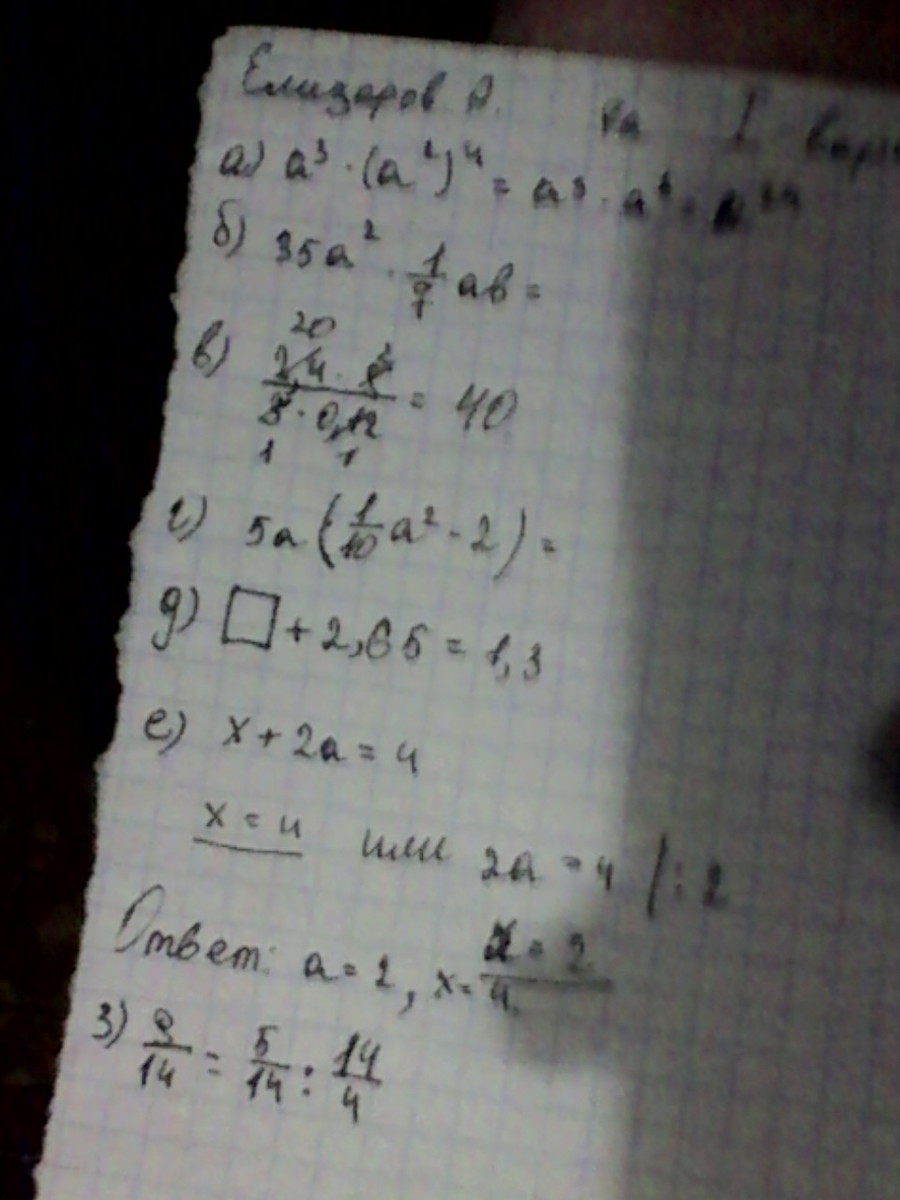 Елизаров А. Ра I вари
а) a³ · (a²)⁴ = a³ · a⁸ = a²⁴
б) 35a² · 1/7 ab =
20
в) 24 · 8 / 3 · 0,12 = 40
1 1
г) 5a (1/10 a² - 2) =
д) □ + 2,65 = 1,3
е) x + 2a = 4
x = 4 или 2a = 4 /: 2
a = 2
Ответ: a = 2, x = 4.
з) 9/14 = 5/14 : 14/4